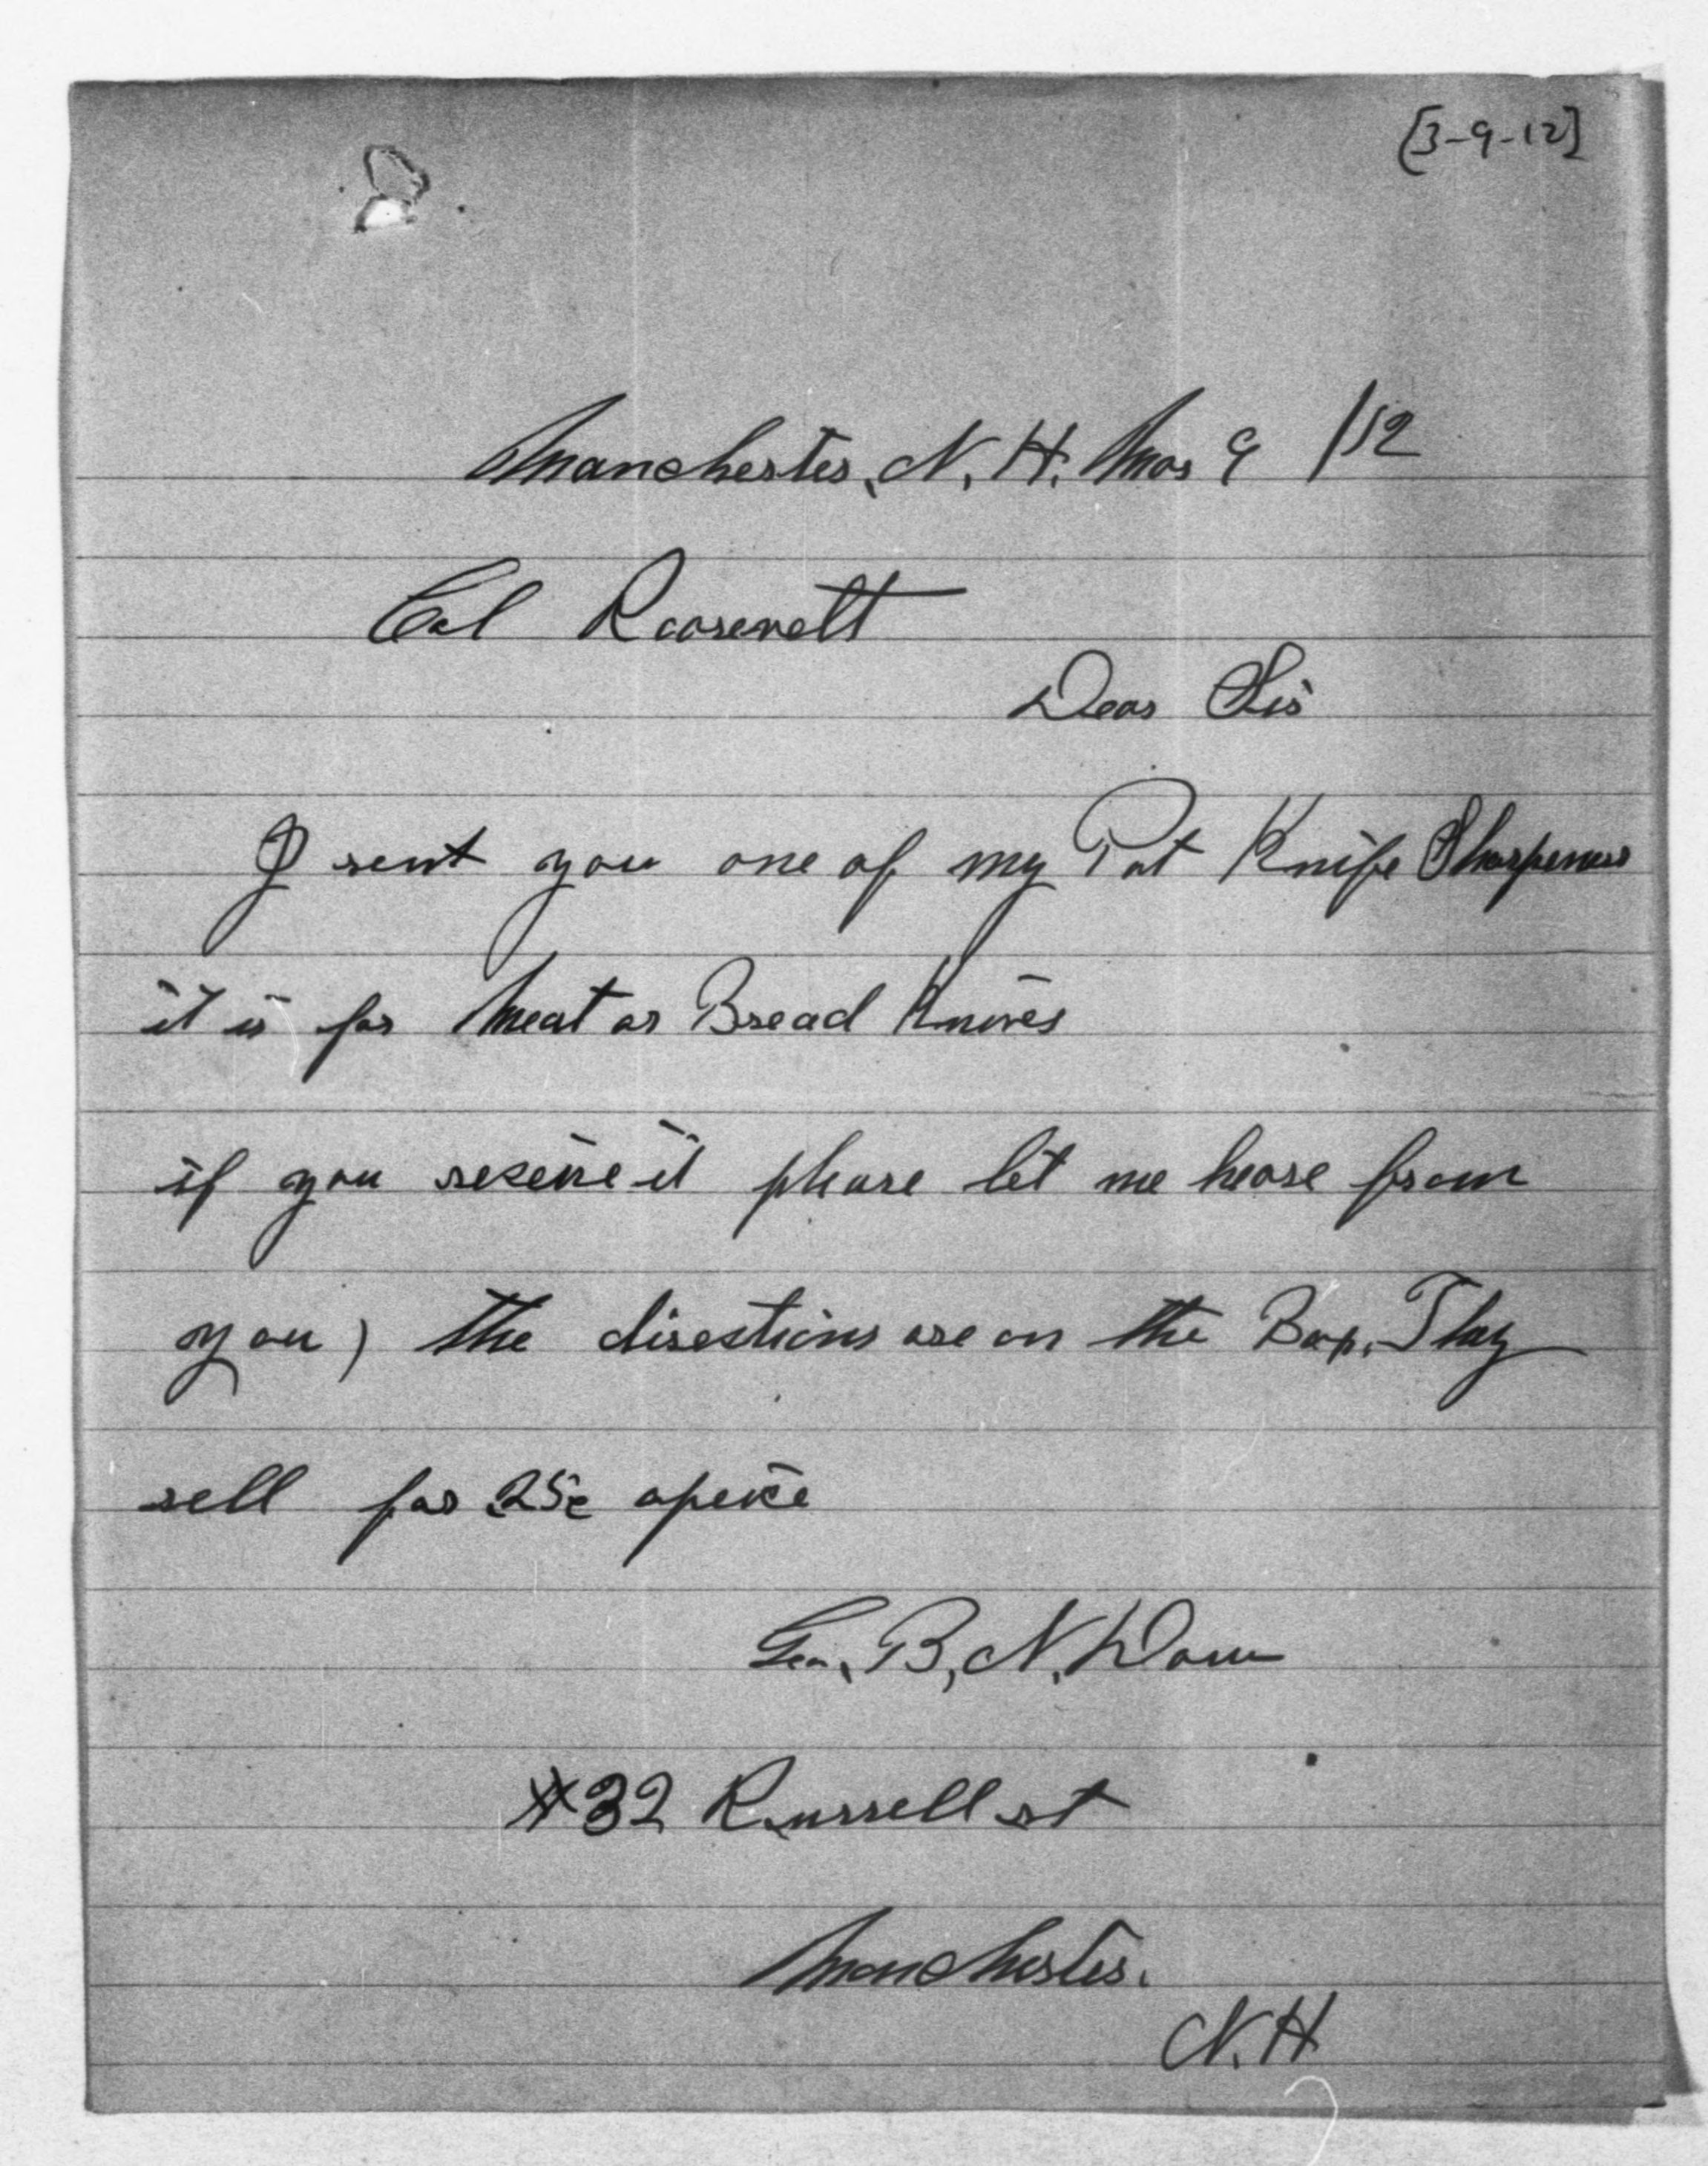 [3-9-12]
Manchester, N. H. Mar 9 /12
Col Roosevelt
Dear Sir
I sent you one of my Pat Knife Sharpeners
it is for Meat or Bread Knives
if you reseive it please let me heare from
you) the directions are on the Box. They
sell for 25c apeice
Geo. B. N. Dow
#32 Russell st
Manchester.
N. H